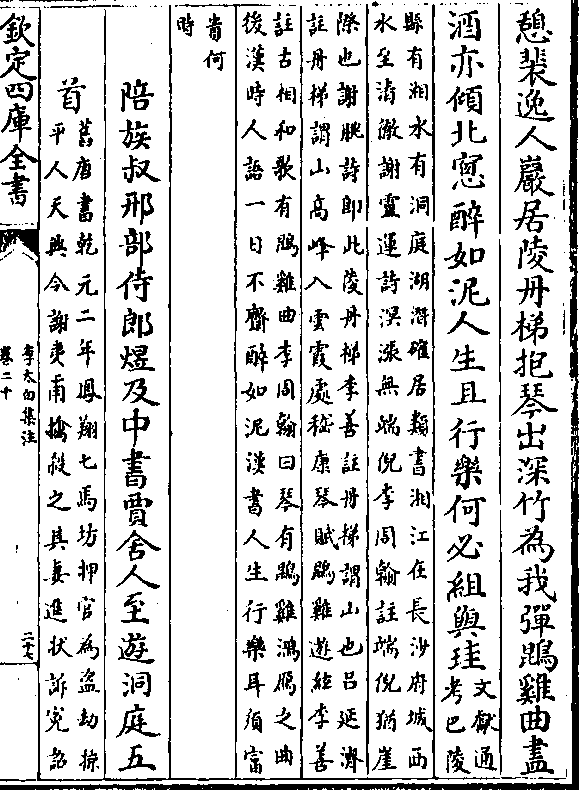 憩裴逸人巖居陵丹梯抱琴出深竹為我彈鵾雞曲盡
酒亦傾北窻醉如泥人生且行樂何必組與珪
文獻通
考巴陵
縣有湘水有洞庭湖潛確居類書湘江在長沙府城西
水至清徹謝靈運詩溟漲無端倪李周翰註端倪猶崖
際也謝朓詩即此陵丹梯李善註丹梯謂山也呂延濟
註丹梯謂山高峰入雲霞處嵇康琴賦鵾雞遊絃李善
註古相和歌有鵾雞曲李周翰曰琴有鵾雞鴻雁之曲
後漢時人語一日不齋醉如泥漢書人生行樂耳須富
貴何
時
陪族叔刑部侍郎煜及中書賈舍人至遊洞庭五
首
舊唐書乾元二年鳳翔七馬坊押官為盜劫掠
平人天興令謝夷甫擒殺之其妻進狀訴冤詔
欽定四庫全書
李太白集注
卷二十
二十七